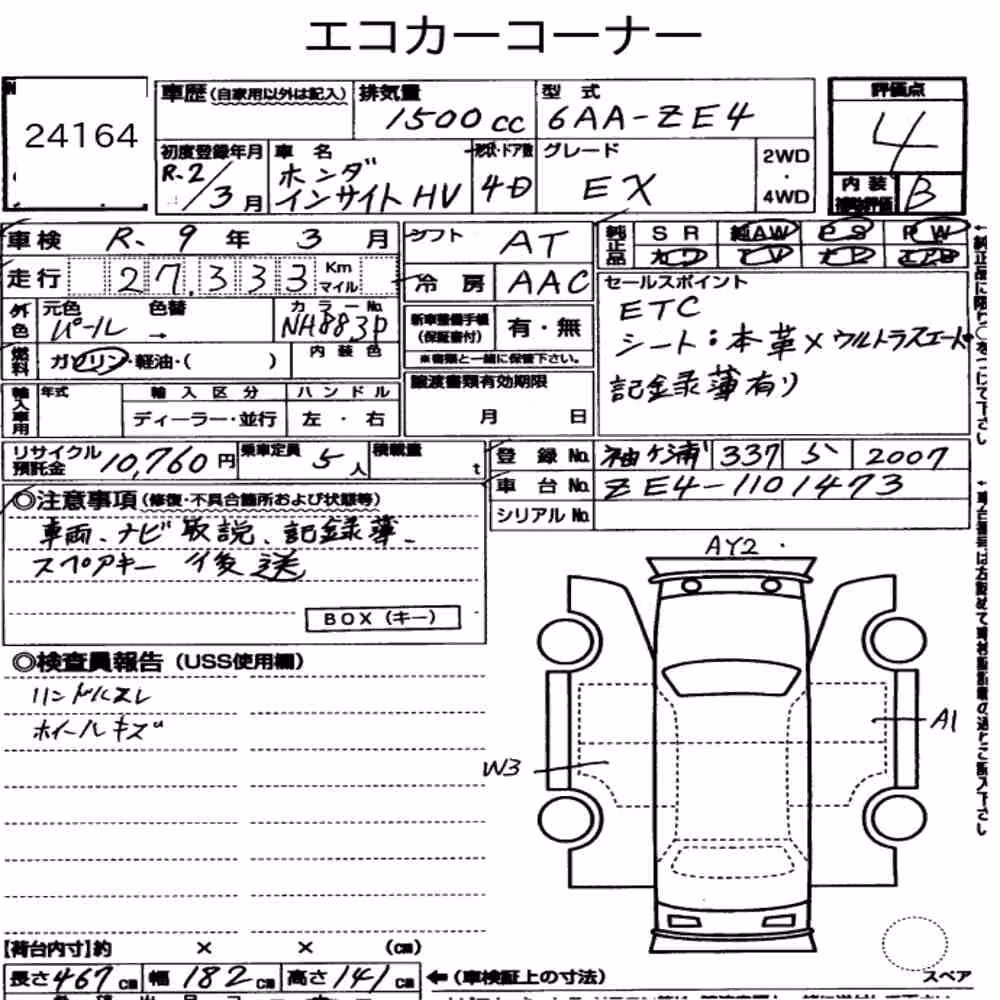 エコカーコーナー
24164
車歴 (自家用以外は記入)
排気量
1500 cc
型式
6AA-ZE4
評価点
4
初度登録年月
R.2/3月
車名
ホンダ
インサイト HV
形状・ドア数
4D
グレード
EX
2WD
・
4WD
内装
補助評価
B
車検 R. 9 年 3 月
シフト AT
純正品
SR 純AW PS PW
カワ TV ナビ エアB
走行 27,333 Km マイル
冷房 AAC
セールスポイント
ETC
シート:本革×ウルトラスエード
記録簿有り
外色
元色 色替 カラーNo.
パール → NH883P
新車整備手帳
(保証書付)
有・無
※書類と一緒に保管下さい。
燃料
ガソリン・軽油・( )
内装色
譲渡書類有効期限
月 日
輸入車用
年式 輸入区分 ハンドル
ディーラー・並行 左・右
リサイクル
預託金
10,760円
乗車定員
5人
積載量
t
登録No. 袖ケ浦 337 ら 2007
車台No. ZE4-1101473
シリアルNo.
◎注意事項 (修復・不具合箇所および状態等)
車両、ナビ取説、記録簿、
スペアキー 後送
BOX(キー)
◎検査員報告 (USS使用欄)
ハンドルスレ
ホイールキズ
AY2
A1
W3
スペア
【荷台内寸】約 × × (cm)
長さ 467 cm 幅 182 cm 高さ 141 cm ←(車検証上の寸法)
↑純正品に限り○をつけて下さい